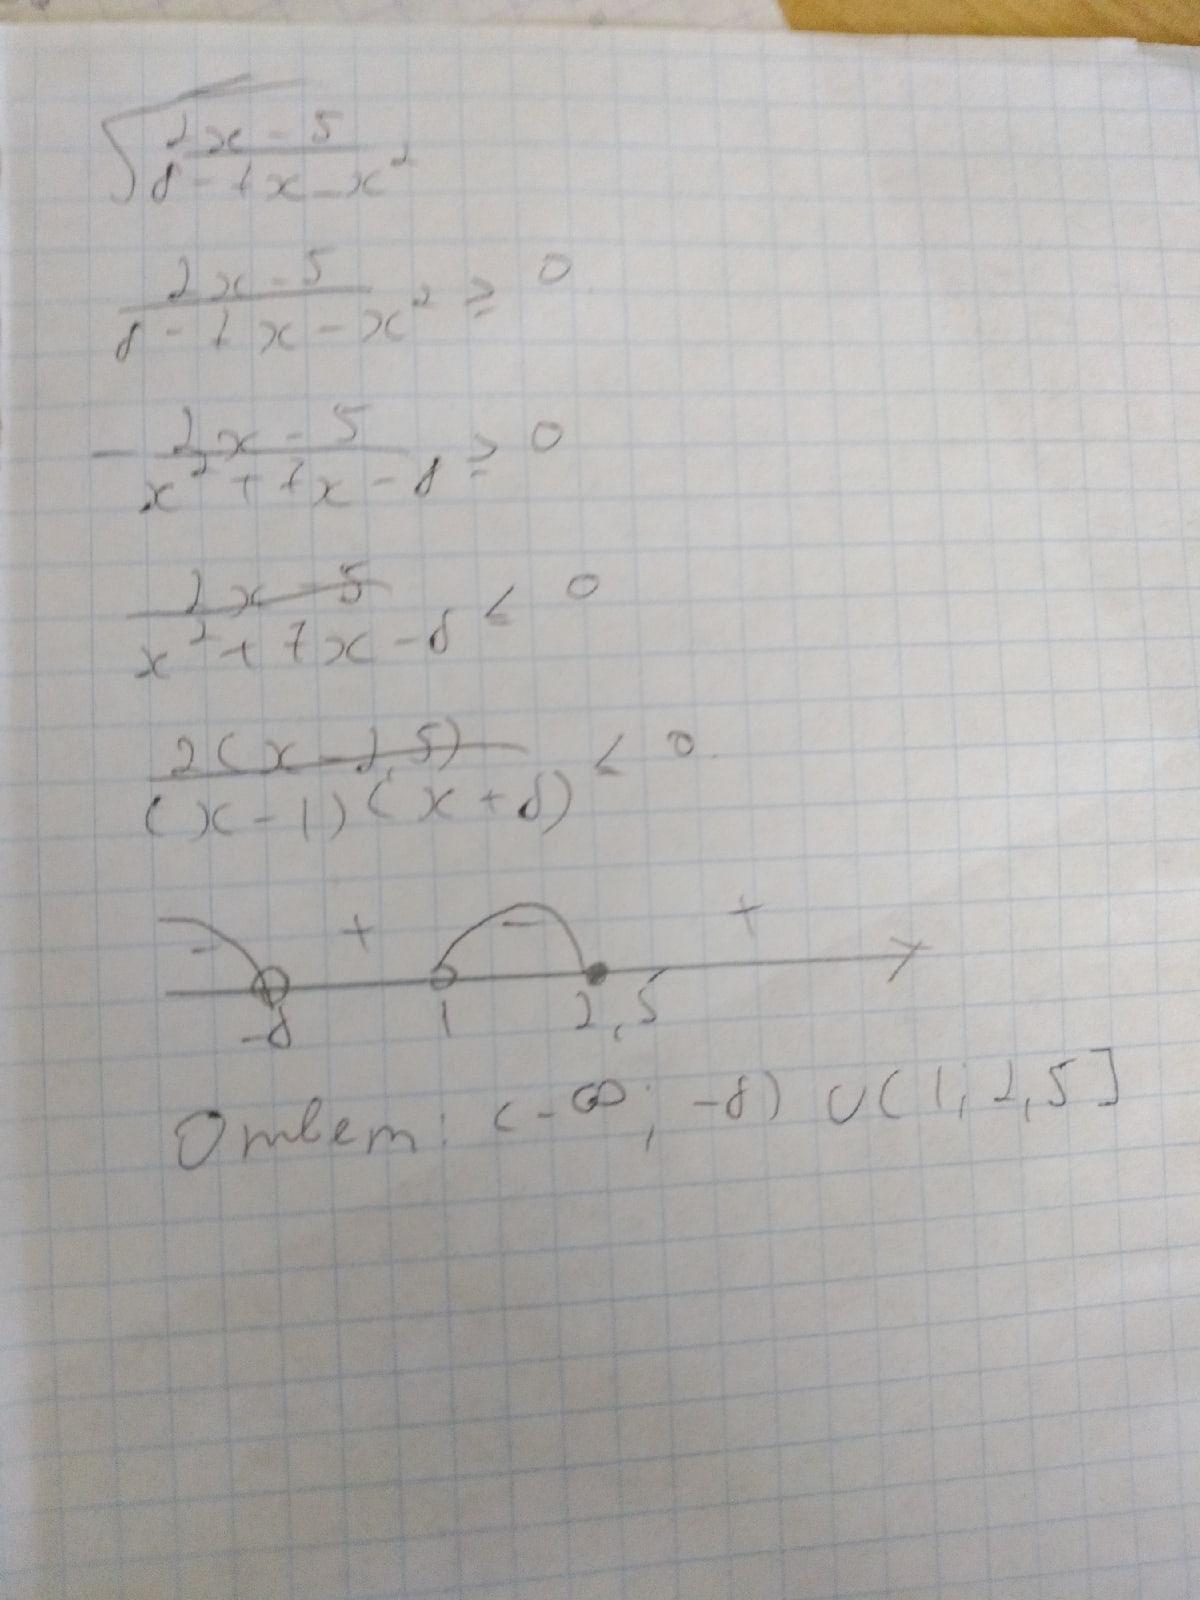 √(2x - 5)/(8 - 7x - x²)
(2x - 5)/(8 - 7x - x²) ≥ 0
- (2x - 5)/(x² + 7x - 8) ≥ 0
(2x - 5)/(x² + 7x - 8) ≤ 0
2(x - 2,5)/((x - 1)(x + 8)) ≤ 0
- + - +
-8 1 2,5
Ответ: (-∞; -8) ∪ (1; 2,5]